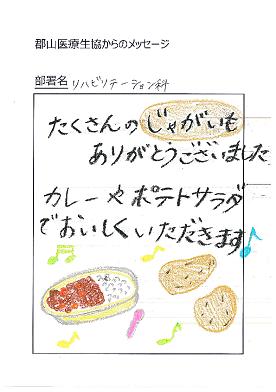 郡山医療生協からのメッセージ
部署名 リハビリテーション科
たくさんのじゃがいも
ありがとうございました
カレーやポテトサラダ
でおいしくいただきます